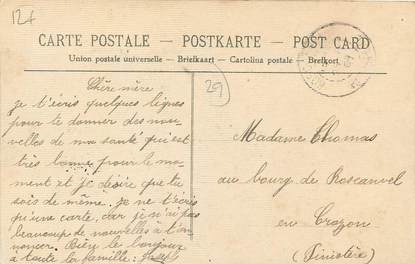 12f
CARTE POSTALE — POSTKARTE — POST CARD
Union postale universelle — Briefkaart — Cartolina postale — Brefkort.
29
Chère mère
je t'écris quelques lignes
pour te donner des nou-
velles de ma santé qui est
très bonne pour le mo-
ment et je désire que tu
sois de même. Je ne t'écris
qu'une carte, car je n'ai pas
beaucoup de nouvelles à t'an-
noncer. Bien le bonjour
à toute la famille: Joseph
Madame Thomas
au bourg de Roscanvel
en Crozon
(Finistère)